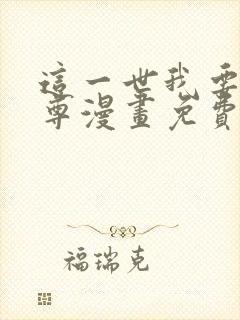 這一世我要
尊漫畫免費
福瑞克